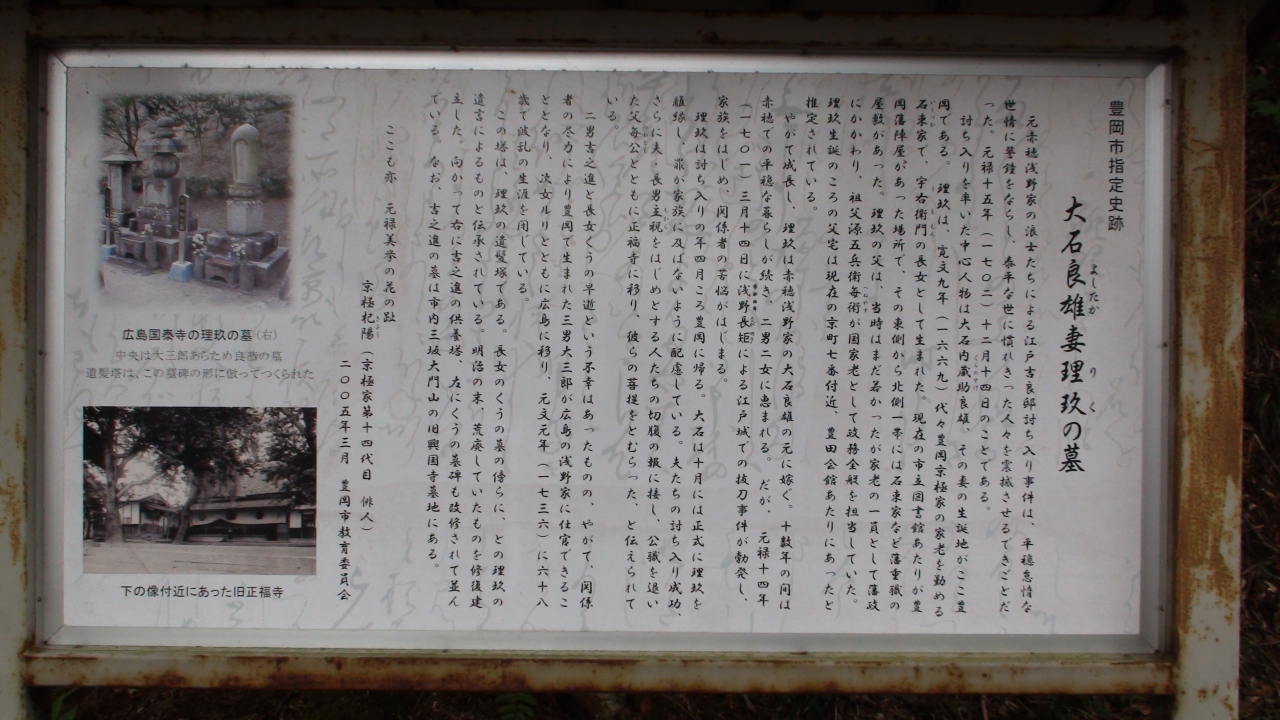 豊岡市指定史跡
大石良雄妻理玖の墓
よしたか
りく
元赤穂浅野家の浪士たちによる江戸吉良邸討ち入り事件は、平穏怠惰な
世情に警鐘をならし、泰平な世に慣れきった人々を震撼させるできごとだ
った。元禄十五年（一七〇二）十二月十四日のことである。
討ち入りを率いた中心人物は大石内蔵助良雄、その妻の生誕地がここ豊
岡である。理玖は、寛文九年（一六六九）代々豊岡京極家の家老を勤める
石束家で、宇右衛門の長女として生まれた。現在の市立図書館あたりが豊
岡藩陣屋があった場所で、その東側から北側一帯には石束家など藩重職の
屋敷があった。理玖の父は、当時はまだ若かったが家老の一員として藩政
にかかわり、祖父源五兵衛毎術が国家老として政務全般を担当していた。
理玖生誕のころの父宅は現在の京町七番付近、豊田会館あたりにあったと
推定されている。
やがて成長し、理玖は赤穂浅野家の大石良雄の元に嫁ぐ。十数年の間は
赤穂での平穏な暮らしが続き、二男二女に恵まれる。だが、元禄十四年
（一七〇一）三月十四日に浅野長矩による江戸城での抜刀事件が勃発し、
家族をはじめ、関係者の苦悩がはじまる。
理玖は討ち入りの年四月ころ豊岡に帰る。大石は十月には正式に理玖を
離縁し、罪が家族に及ばないように配慮している。夫たちの討ち入り成功、
さらに夫・長男主税をはじめとする人たちの切腹の報に接し、公職を退い
た父毎公とともに正福寺に移り、彼らの菩提をとむらった、と伝えられて
いる。
二男吉之進と長女くうの早逝という不幸はあったものの、やがて、関係
者の尽力により豊岡で生まれた三男大三郎が広島の浅野家に仕官できるこ
ととなり、次女ルリとともに広島に移り、元文元年（一七三六）に六十八
歳で波乱の生涯を閉じている。
この塔は、理玖の遺髪塚である。長女のくうの墓の傍らに、との理玖の
遺言によるものと伝承されている。明治の末、荒廃していたものを修復建
立した。向かって右に吉之進の供養塔、左にくうの墓碑も改修されて並ん
でいる。なお、吉之進の墓は市内三坂大門山の旧興国寺墓地にある。
ここも亦 元禄美挙の花の趾
京極杞陽（京極家第十四代目 俳人）
二〇〇五年三月 豊岡市教育委員会
広島国泰寺の理玖の墓（右）
中央は大三郎あらため良恭の墓
遺髪塔は、この墓碑の形に倣ってつくられた
下の像付近にあった旧正福寺